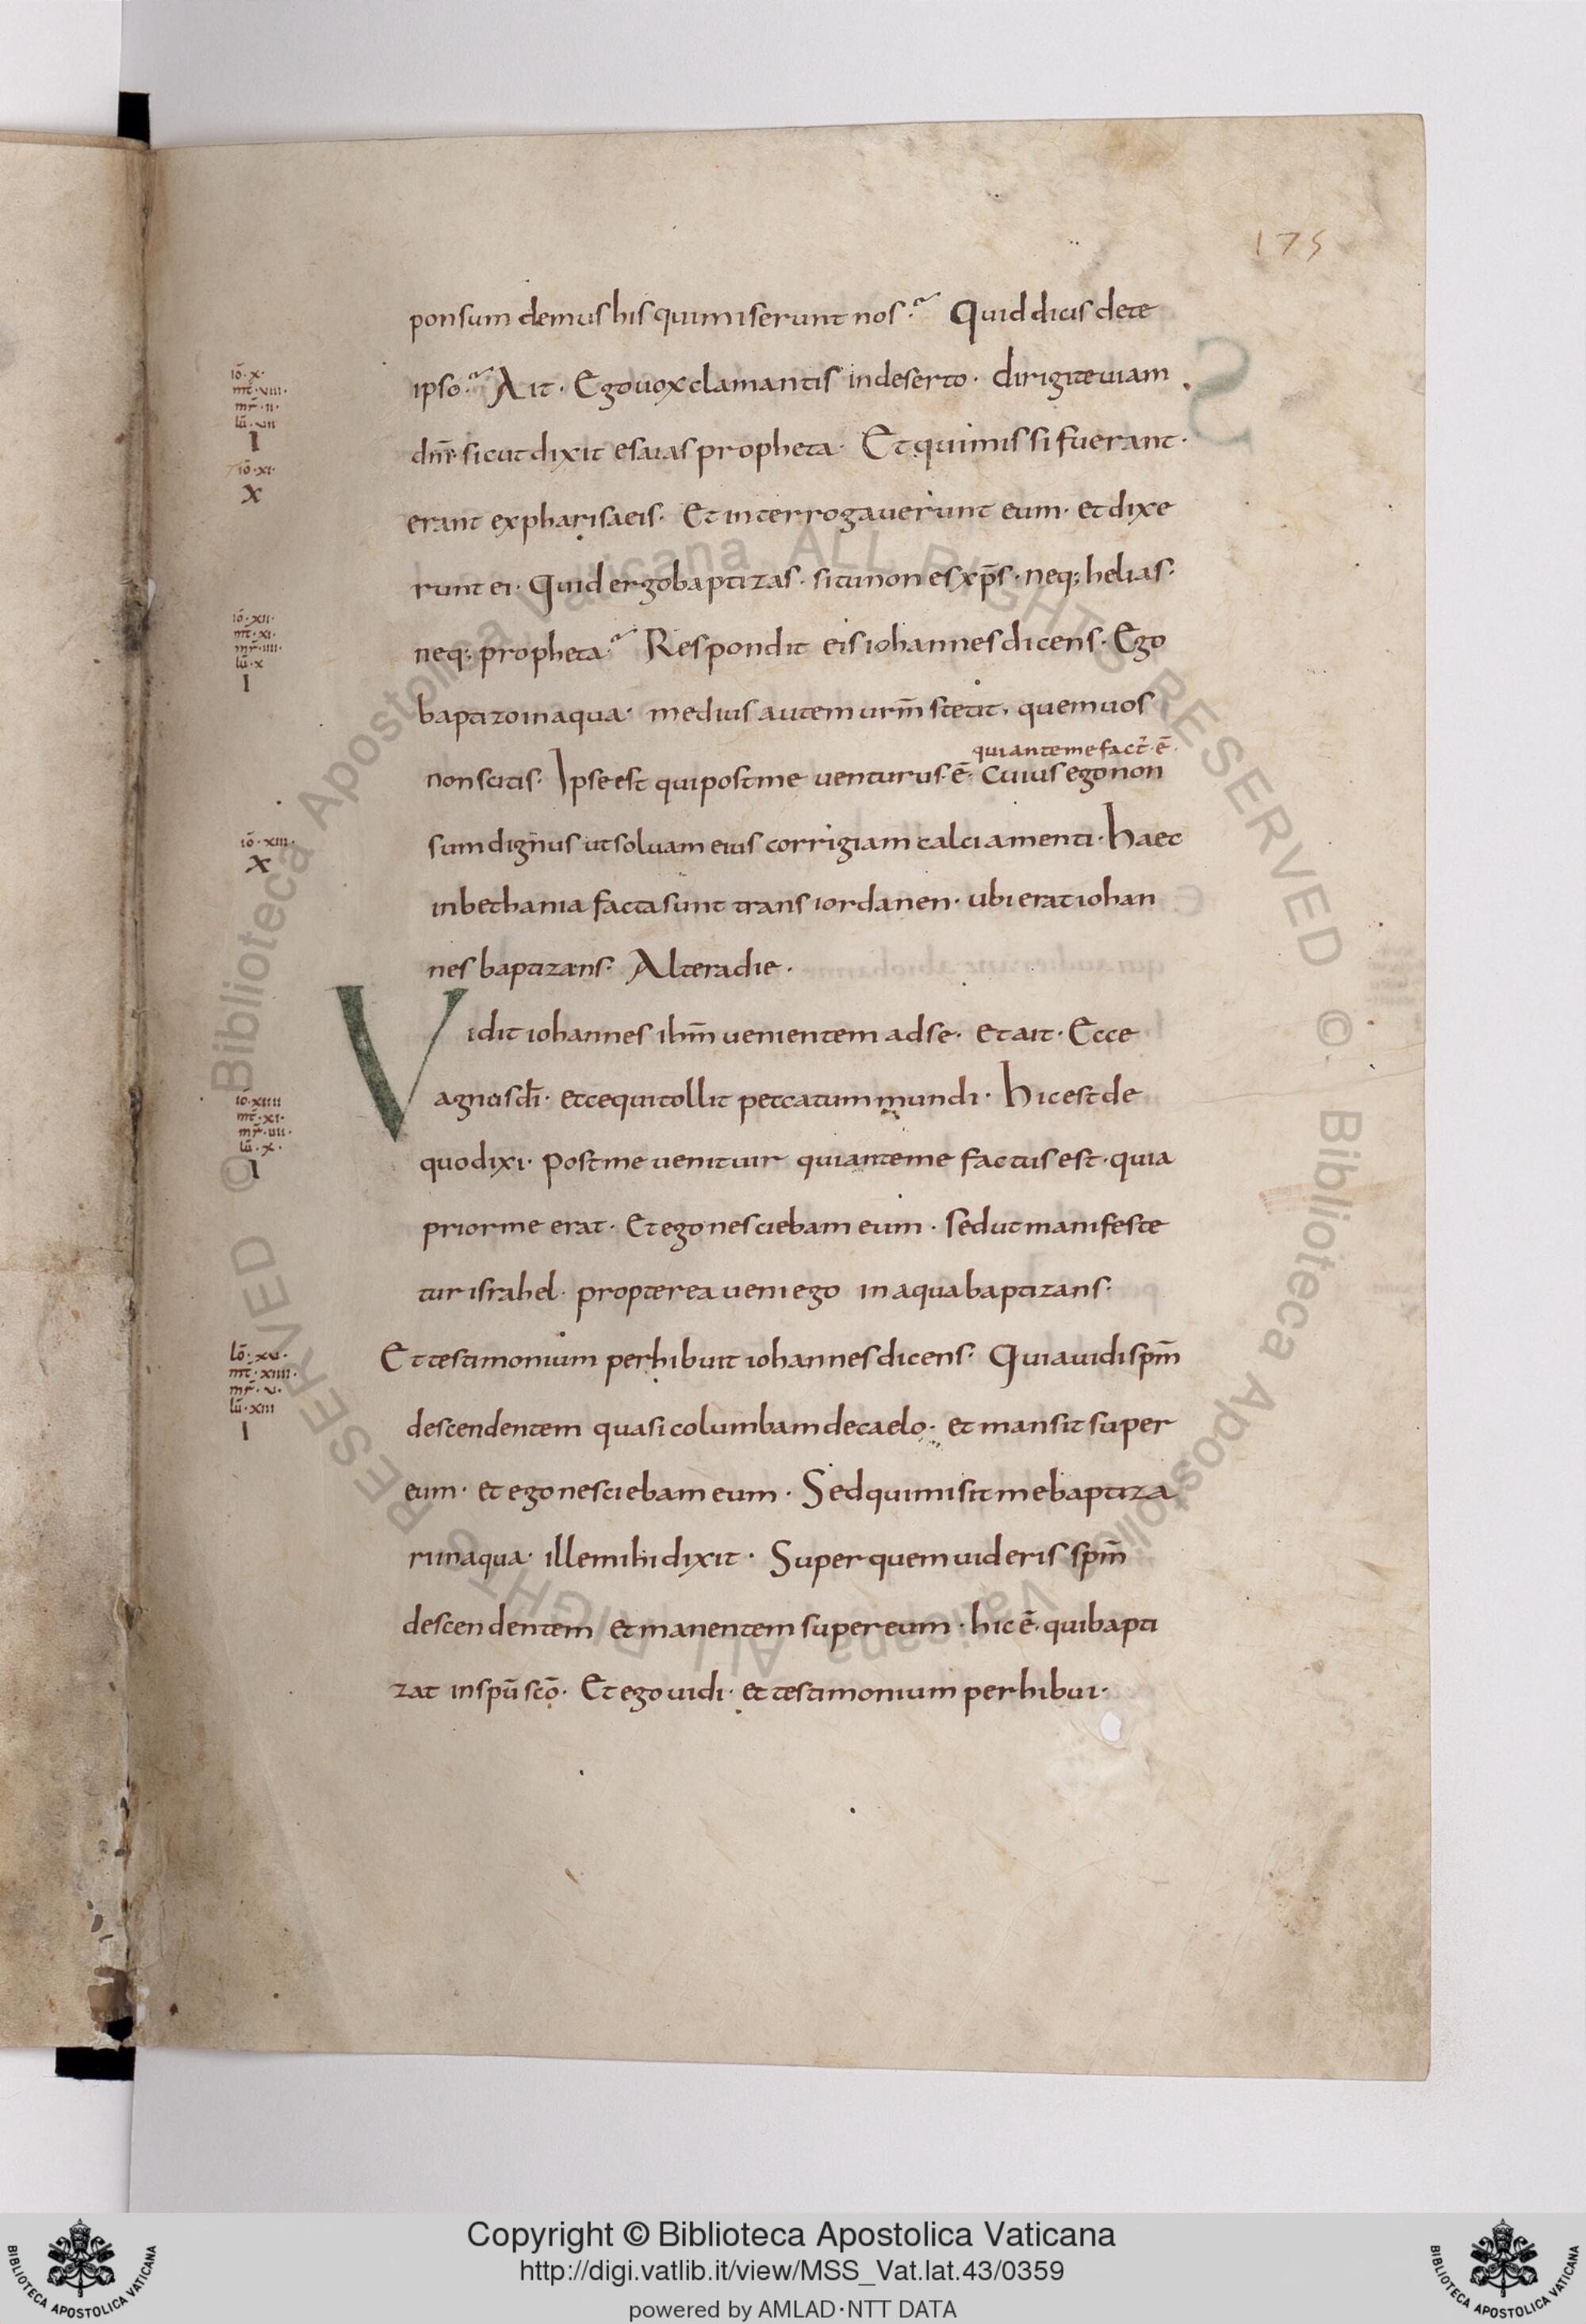 175
ponsum demus his qui miserunt nos· Quid dicis de te
ipso· Ait· Ego vox clamantis in deserto· dirigite uiam
dn̄i· sicut dixit esaias propheta· Et qui missi fuerant·
erant ex pharisaeis· Et interrogauerunt eum· et dixe
runt ei· Quid ergo baptizas· si tu non es xp̄s· neq; helias·
neq; propheta· Respondit eis iohannes dicens· Ego
baptizo in aqua· medius autem urm̄ stetit, quem uos
qui ante me fact' ē·
non scitis· Ipse est qui post me venturus ē· Cuius ego non
sum dignus ut soluam eius corrigiam calciamenti· haec
in bethania facta sunt trans iordanen· ubi erat iohan
nes baptizans· Altera die·
Vidit iohannes ihm̄ uenientem ad se· et ait· Ecce
agnus dī· ecce qui tollit peccatum mundi· hic est de
quo dixi· post me uenit uir qui ante me factus est· quia
prior me erat· Et ego nesciebam eum· sed ut manifeste
tur israhel· propterea ueni ego in aqua baptizans·
Et testimonium perhibuit iohannes dicens· Quia uidi spm̄
descendentem quasi columbam de caelo· et mansit super
eum· et ego nesciebam eum· Sed qui misit me baptiza
re in aqua· ille mihi dixit· Super quem uideris spm̄
descendentem et manentem super eum· hic ē· qui bapti
zat in spū scō· Et ego uidi· et testimonium perhibui·
iō· x·
mt̄· viii·
mr̄· ii·
lū· vii
I
iō· xi·
X
iō· xii·
mt̄· xi·
mr̄· iiii·
lū· x
I
iō· xiii·
X
iō· xiiii
mt̄· xi·
mr̄· iiii·
lū· x·
I
Iō· xv·
mt̄· xiiii·
mr̄· v·
lū· xiii
I
Copyright © Biblioteca Apostolica Vaticana
http://digi.vatlib.it/view/MSS_Vat.lat.43/0359
powered by AMLAD·NTT DATA
BIBLIOTECA APOSTOLICA VATICANA
BIBLIOTECA APOSTOLICA VATICANA
© Biblioteca Apostolica Vaticana ALL RIGHTS RESERVED © Biblioteca Apostolica Vaticana ALL RIGHTS RESERVED